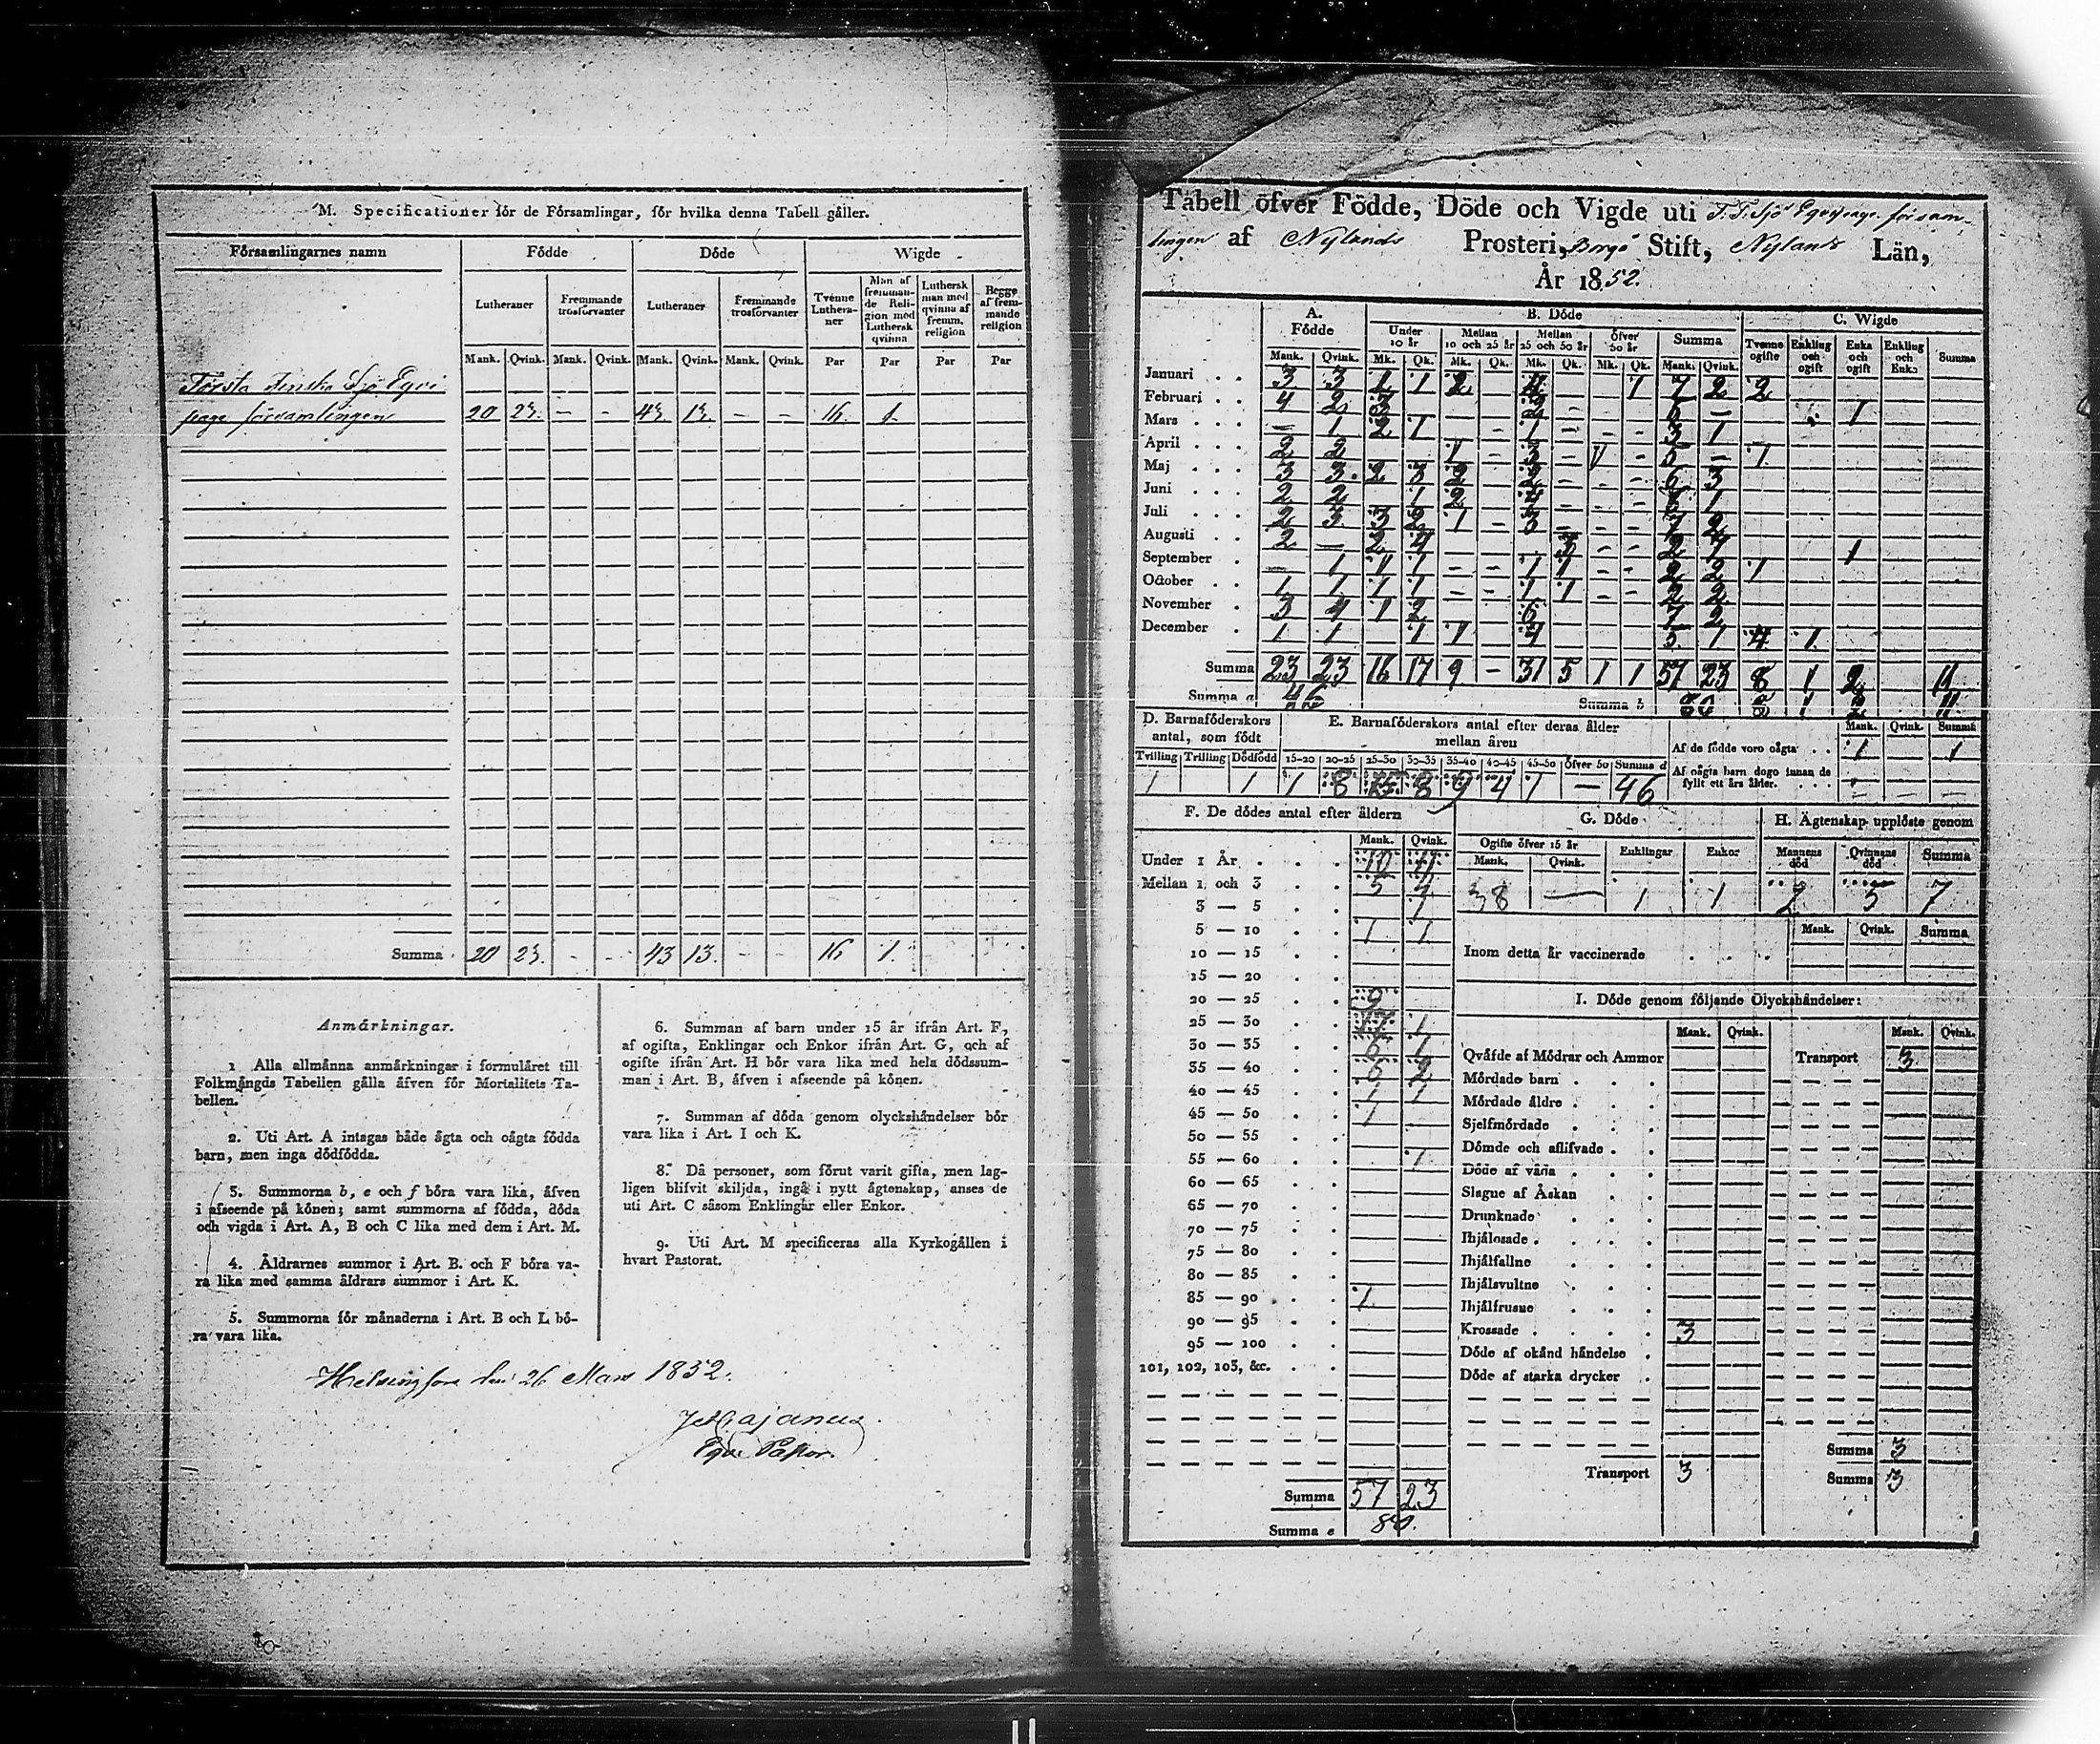 M. Specificationer för de Församlingar, för hvilka denna Tabell gäller.
Församlingarnes namn | Födde | Döde | Wigde
Lutheraner | Fremmande trosförvanter | Lutheraner | Fremmande trosförvanter | Tvenne Lutheraner | Man af fremmande Religion med Luthersk qvinna | Luthersk man med qvinna af fremm. religion | Begge af fremmande religion
Mank. | Qvink. | Mank. | Qvink. | Mank. | Qvink. | Mank. | Qvink. | Par | Par | Par | Par
Första Finska Sjö Eqvi
page församlingen | 20 | 23. | - | - | 43 | 13. | - | - | 16. | 1.
Summa | 20 | 23. | - | - | 43 | 13. | - | - | 16 | 1.
Anmärkningar.
1 Alla allmänna anmärkningar i formuläret till
Folkmängds Tabellen gälla äfven för Mortalitets Ta-
bellen.
2. Uti Art. A intagas både ägta och oägta födda
barn, men inga dödfödda.
3. Summorna b, e och f böra vara lika, äfven
i afseende på könen; samt summorna af födda, döda
och vigda i Art. A, B och C lika med dem i Art. M.
4. Åldrarnes summor i Art. B. och F böra va-
ra lika med samma åldrars summor i Art. K.
5. Summorna för månaderna i Art. B och L bö-
ra vara lika.
6. Summan af barn under 15 år ifrån Art. F,
af ogifta, Enklingar och Enkor ifrån Art. G, och af
ogifte ifrån Art. H bör vara lika med hela dödssum-
man i Art. B, äfven i afseende på könen.
7. Summan af döda genom olyckshändelser bör
vara lika i Art. I och K.
8. Då personer, som förut varit gifta, men lag-
ligen blifvit skiljda, ingå i nytt ägtenskap, anses de
uti Art. C såsom Enklingar eller Enkor.
9. Uti Art. M specificeras alla Kyrkogällen i
hvart Pastorat.
Helsingfors den 26 Mars 1852.
Cajanus
Eqve Pastor.
Tabell öfver Födde, Döde och Vigde uti F. F. Sjö Eqvipage försam-
lingen af Nylands Prosteri, Borgå Stift, Nylands Län,
År 1852.
A. Födde | B. Döde | C. Wigde
Under 10 år | Mellan 10 och 25 år | Mellan 25 och 50 år | Öfver 50 år | Summa | Tvenne ogifte | Enkling och ogift | Enka och ogift | Enkling och Enka | Summa
Mank. | Qvink. | Mk. | Qk. | Mk. | Qk. | Mk. | Qk. | Mk. | Qk. | Mank. | Qvink.
Januari | 3 | 3 | 1 | 1 | 2 | 4 | 1 | 7 | 2 | 2
Februari | 4 | 2 | 3 | 2 | - | 5 | - | 1
Mars | - | 1 | 2 | 1 | - | 1 | - | - | - | 3 | 1
April | 2 | 2 | 1 | - | 3 | - | 1 | - | 5 | - | 1
Maj | 3 | 3 | 2 | 3 | 2 | 2 | - | - | - | 6 | 3
Juni | 2 | 2 | 1 | 2 | 1
Juli | 2 | 3 | 3 | 2 | 1 | - | 3 | - | - | - | 7 | 2
Augusti | 2 | - | 2 | 4 | 3 | - | - | 2 | 7 | 1
September | - | 1 | 1 | 1 | - | - | 1 | 1 | - | - | 2 | 2 | 1
October | 1 | 1 | 1 | 1 | - | - | 1 | 1 | - | - | 2 | 2
November | 3 | 4 | 1 | 2 | 6 | 7 | 2
December | 1 | 1 | 1 | 1 | 4 | 5 | 1 | 4 | 1
Summa | 23 | 23 | 16 | 17 | 9 | - | 31 | 5 | 1 | 1 | 57 | 23 | 8 | 1 | 2 | 11
Summa a | 46 | Summa b | 80 | 8 | 1 | 2 | 11
D. Barnaföderskors antal, som födt | E. Barnaföderskors antal efter deras ålder mellan åren | Mank. | Qvink. | Summa
Tvilling | Trilling | Dödfödd | 15-20 | 20-25 | 25-30 | 30-35 | 35-40 | 40-45 | 45-50 | öfver 50 | Summa d
1 | 1 | 1 | 8 | 15 | 8 | 9 | 4 | 1 | — | 46
Af de födde voro oägta | 1 | 1
Af oägta barn dogo innan de
fyllt ett års ålder. | - | - | -
F. De dödes antal efter åldern
Mank. | Qvink.
Under 1 År | 10 | 11
Mellan 1 och 3 | 5 | 4
3 — 5 | 1
5 — 10 | 1 | 1
10 — 15
15 — 20
20 — 25 | 9
25 — 30 | 17 | 1
30 — 35 | 6 | 1
35 — 40 | 6 | 2
40 — 45 | 1 | 1
45 — 50 | 1
50 — 55
55 — 60 | 1
60 — 65
65 — 70
70 — 75
75 — 80
80 — 85
85 — 90 | 1
90 — 95
95 — 100
101, 102, 103, &c.
Summa | 57 | 23
Summa e | 80.
G. Döde | H. Ägtenskap upplöste genom
Ogifte öfver 15 år | Enklingar | Enkor | Mannens död | Qvinnans död | Summa
Mank. | Qvink.
38 | — | 1 | 1 | 2 | 5 | 7
Mank. | Qvink. | Summa
Inom detta år vaccinerade
I. Döde genom följande Olyckshändelser:
Mank. | Qvink. | Mank. | Qvink.
Qväfde af Mödrar och Ammor | Transport | 3
Mördade barn
Mördade äldre
Sjelfmördade
Dömde och aflifvade
Döde af våda
Slagne af Åskan
Drunknade
Ihjälosade
Ihjälfallne
Ihjälsvultne
Ihjälfrusne
Krossade | 3
Döde af okänd händelse
Döde af starka drycker
Summa | 3
Transport | 3 | Summa | 3